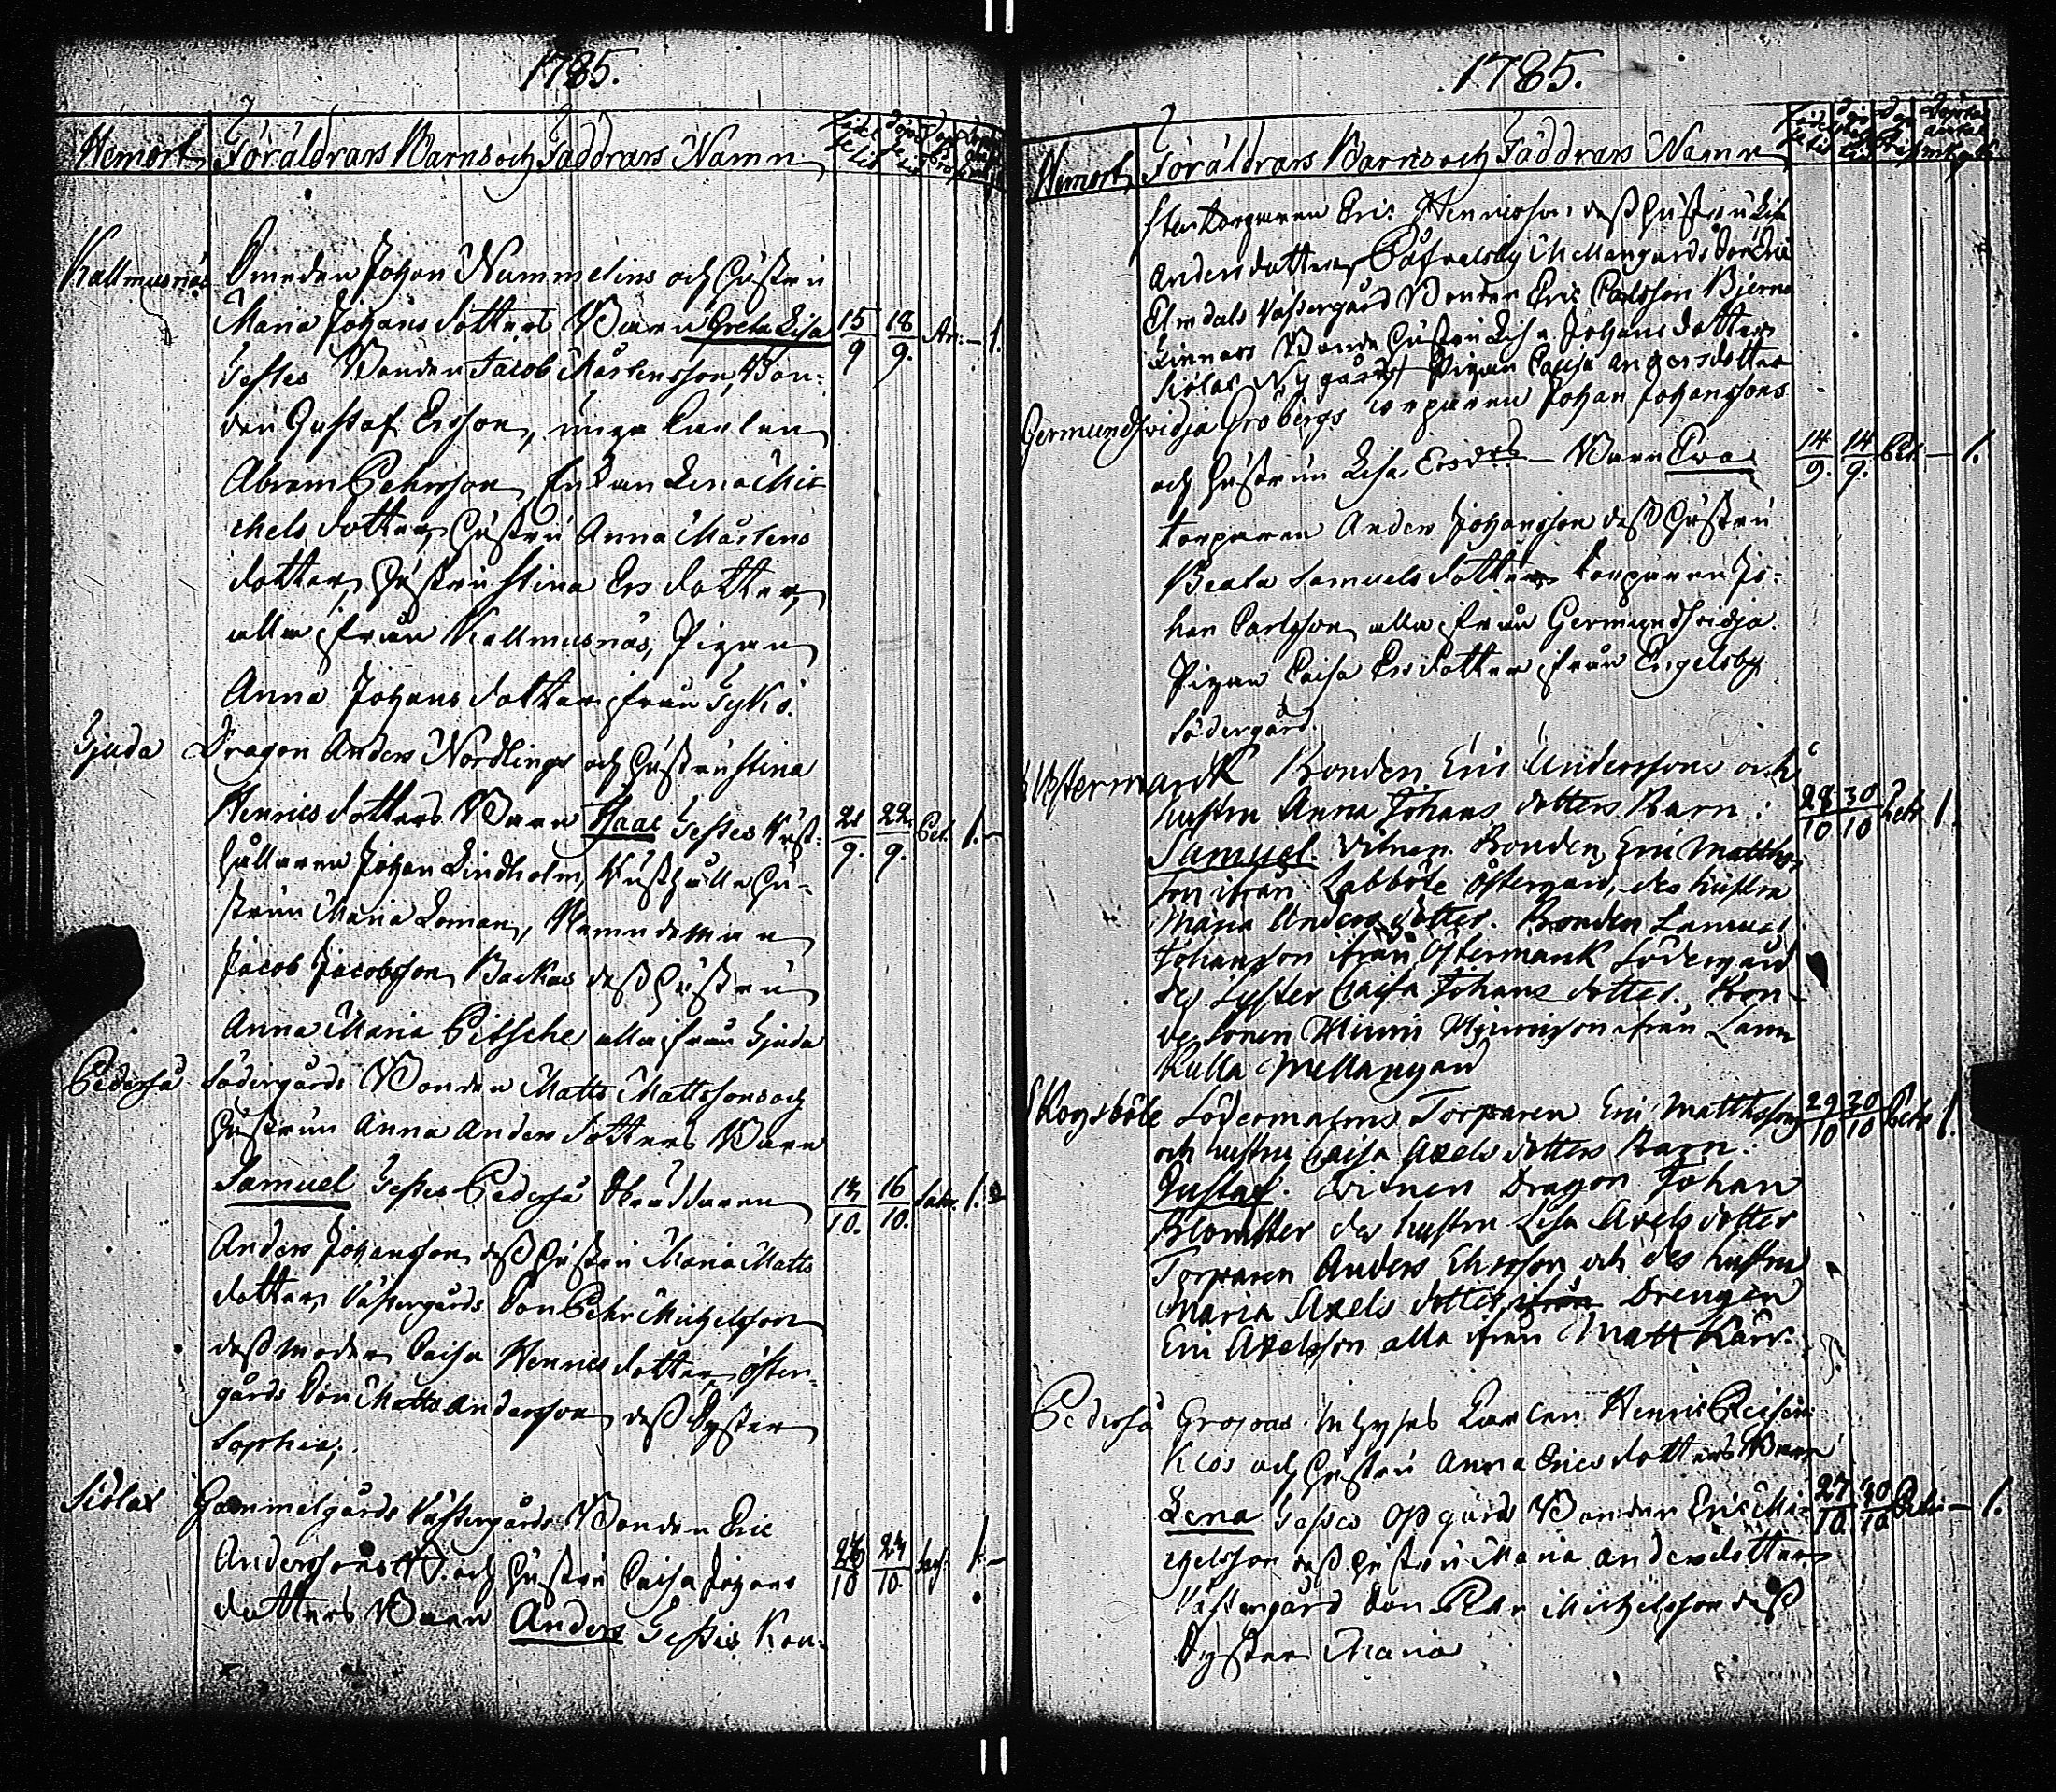 1785.
Hemort Föräldrars Barns och Faddrars Namn
Kallmusnäs Johan Nummelins och Hustru
Maria Johans dotters Barn Greta Lisa 15/9 18/9. An: – 1.
Testes Bonden Jacob Mårtensson, Bon-
den Gustaf Ersson, unga Karlen
Abram Pehrsson, Enkan Lena Mic-
hels dotter, Hustru Anna Mårtens
dotter, Hustru Stina Ers dotter,
alla ifrån Kallmusnäs, Pigan
Anna Johans dotter ifrån
Dragon Anders Nordlings och Hustru Stina
Henrics dotters Barn Isaac Testes Hus-
hållaren Johan Lindholm, Hushålls Hu-
strun Maria Loman, Nämndeman
Jacob Jacobsson Backas dess Hustru
Anna Maria Pitsche alla ifrån
21/9. 22/9. Pet. 1. –
Pederså Södergårds Bonden Matts Mattssons och
Hustrun Anna Anders dotters Barn
Samuel Testes Pederså 16/10. 1.
Anders Johansson, dess Hustru Maria Matts
dotter, Västergårds Son Pehr Michelsson
dess moder Caisa Henrics dotter, Öster-
gårds Son Matts Andersson dess Syster
Sophia,
Siölax Gammelgårds Västergårds Bonden Eric
Anderssons och Hustru Caisa Johans
dotters Barn Anders Testes Bon-
1785.
Hemort Föräldrars Barns och Faddrars Namn
Torparen Eric Henricsson, dess Hustru Lisa
Anders dotter, Påfvalsby Mellangårds
Elmdals Västergård Bonden Eric Carlsson Bjerno
Bonde Hustru Lisa Johans dotter
Siölax Nygård Pigan Caisa Andersdotter
Germundsvidja Gröbergs Torparen Johan Johanssons
och Hustrun Lisa Ersdrs – Barn Eva 14/9. 14/9. Pet. – 1.
Torparen Anders Johansson dess Hustru
Beata Samuels dotter Torparen Jo-
han Carlsson alla ifrån Germundsvidja.
Pigan Caisa Ers dotter ifrån Engelsby
Södergård.
Westermark Bonden Eric Anderssons och
hustru Anna Johans dotters Barn: 28/10 30/10 Petr 1.
Samuel. Vitnen. Bonden Eric Matths-
son ifrån Labböle Östergård, des hustru
Maria Anders dotter. Bonden Samuel
Johansson ifrån Östermark Södergård
des Syster Caisa Johans dotter. Bon-
de Sonen ifrån Lam
Kulla Mellangård
Skogsböle Södermalms Torparen Eric Matthssons
och hustru Caisa Axels dotters Barn: 29/10 30/10 Petr 1.
Gustaf. Vitnen Dragon Johan
Blomster des hustru Lisa Axels dotter
Torparen Anders Ehrsson och des hustru
Maria Axels dotter, ifrån Drengen
Eric Axelsson alla ifrån Matt Kärr.
Pederså Inhyses Karlen Henric
och Hustru Anna Erics dotters Barn
Lena Testes Opgårds Bonden Eric Mi- 27/10 30/10 – 1.
chelsson dess Hustru Maria Andersdotter
Västergård Son Pehr Michelsson dess
Syster Maria